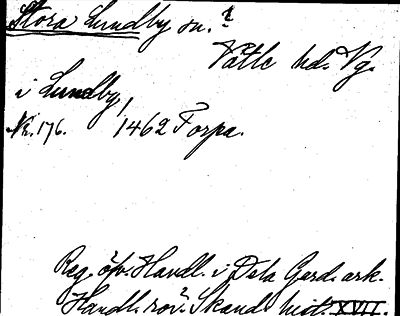 Stora Lundby sn.
Vättle hd. Vg.
i Lundby,
Nr. 176. 1462 Torpa.
Reg. öfv. Handl. i Dela Gard. ark.
Handl. rör. Skand. hist. XVII.